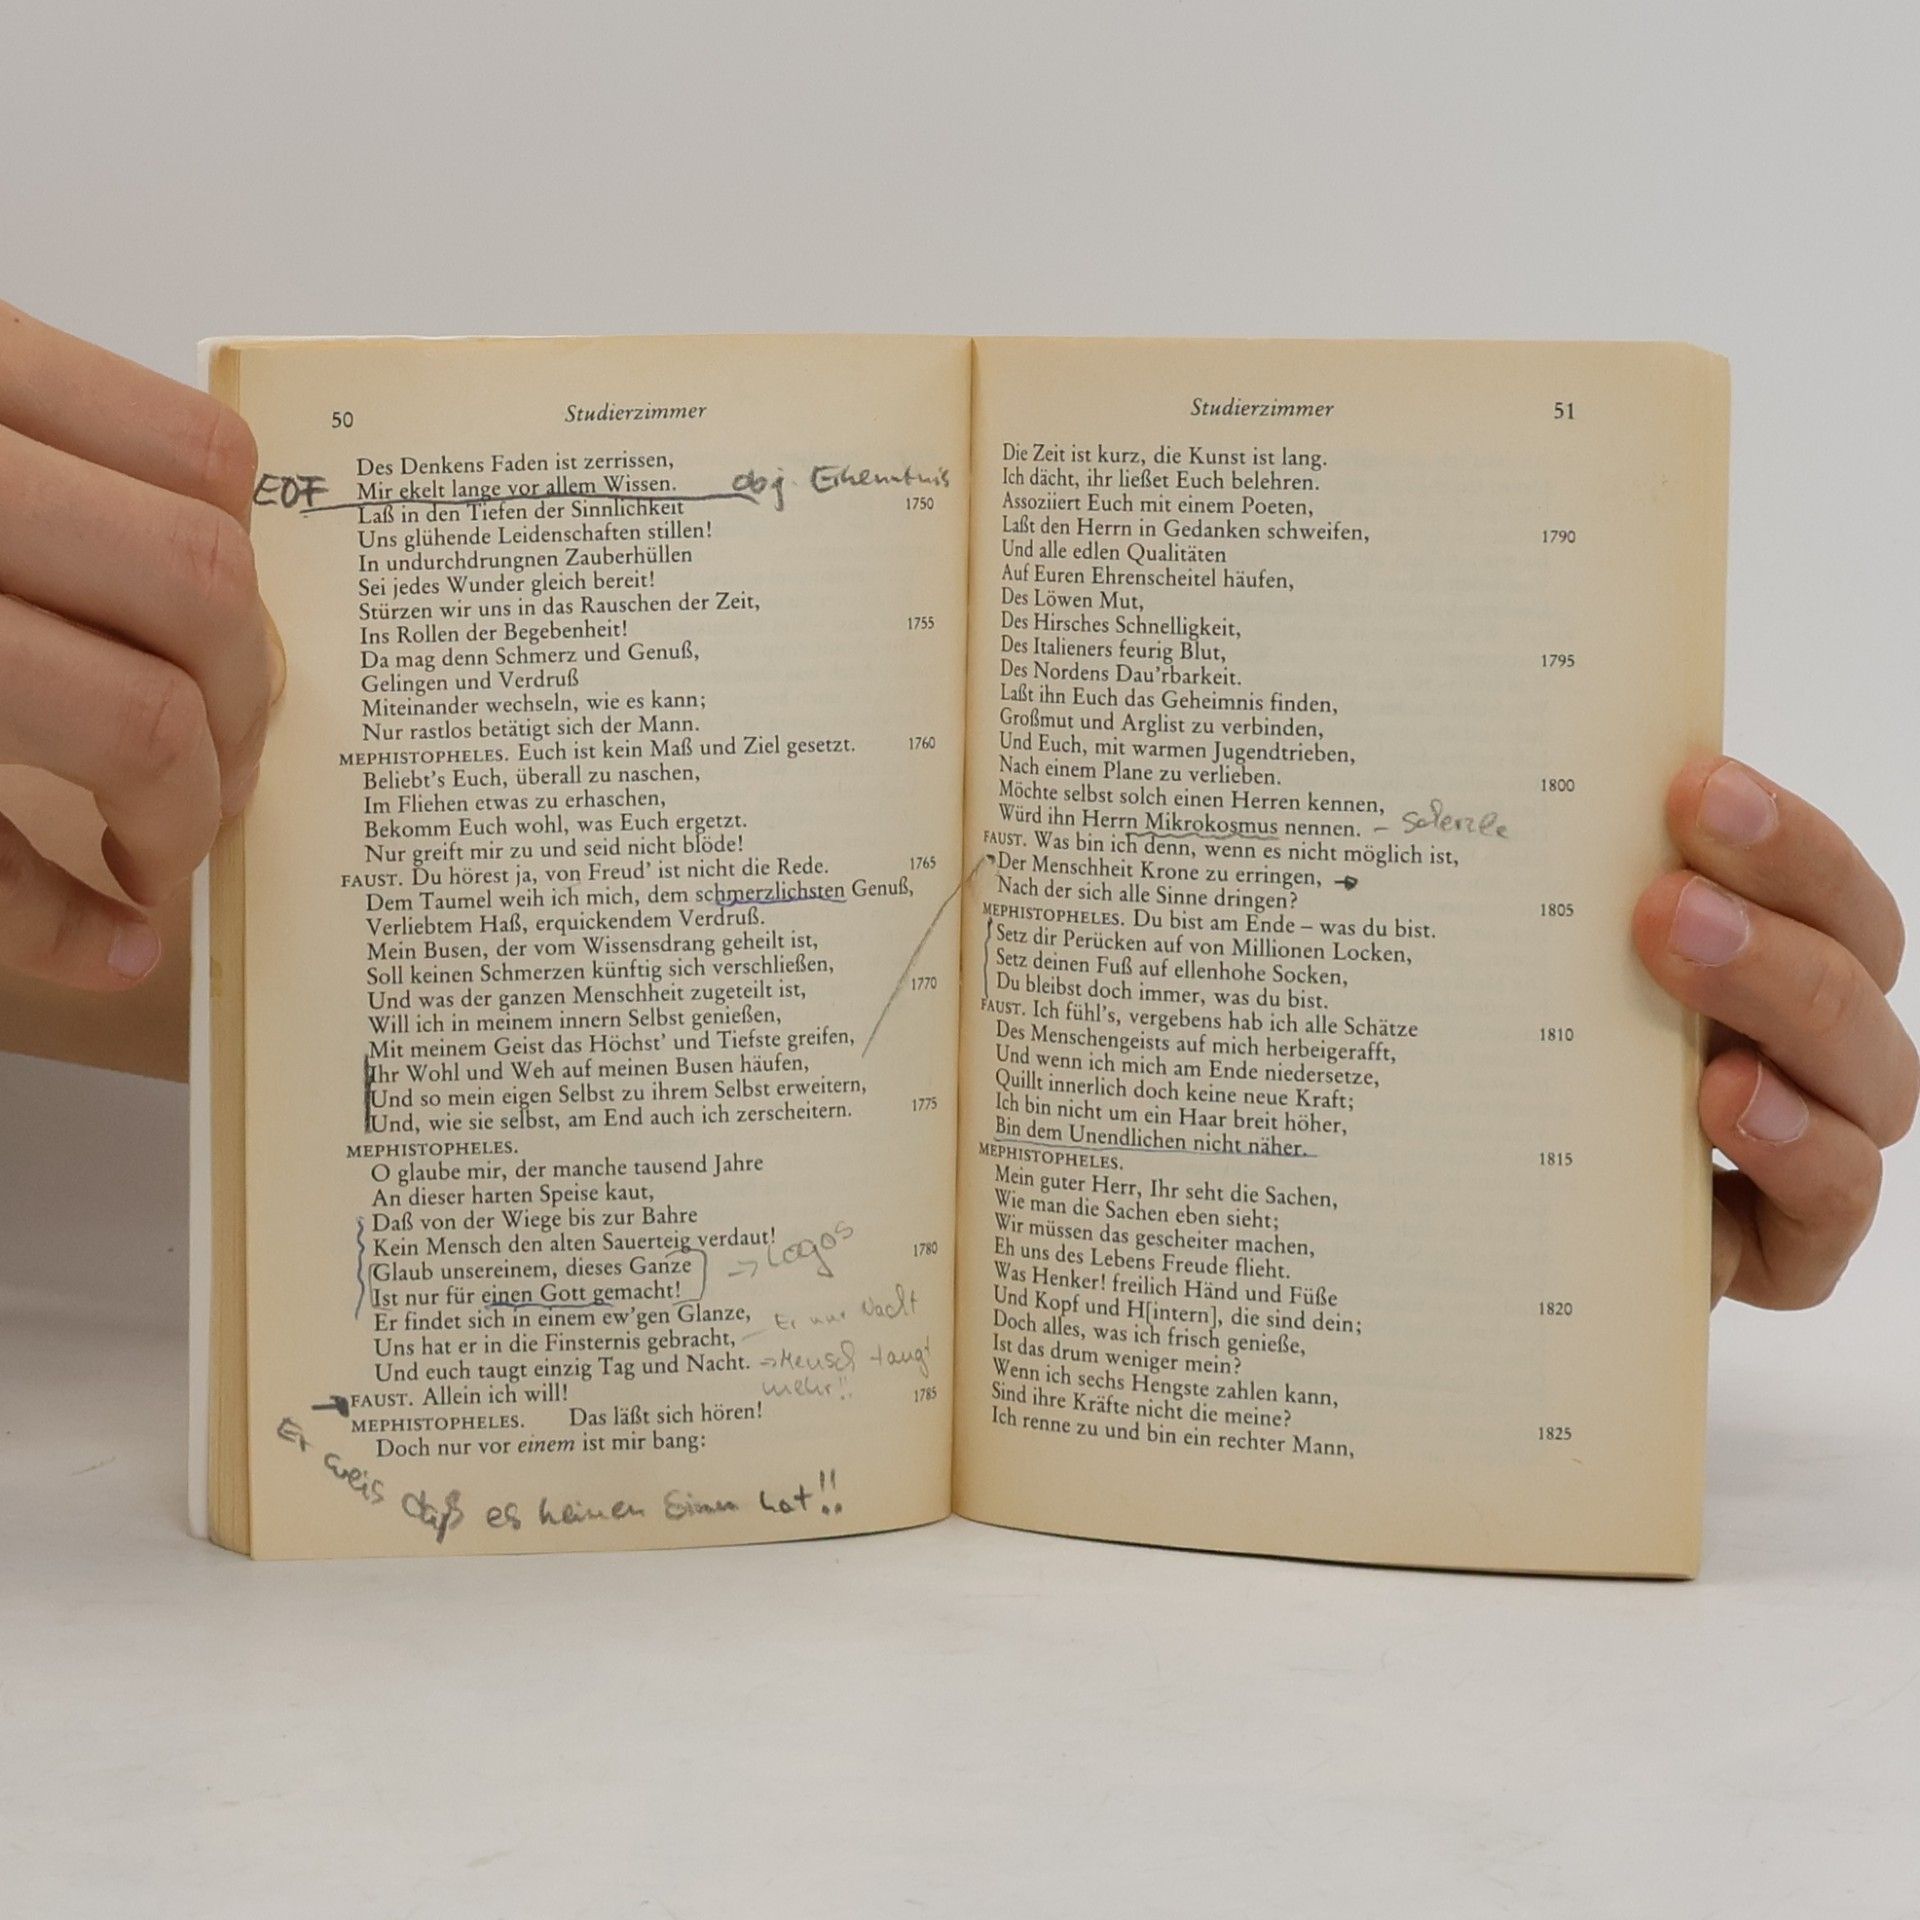 50 Studierzimmer
Des Denkens Faden ist zerrissen,
EOF Mir ekelt lange vor allem Wissen. obj. Erkenntnis
Laß in den Tiefen der Sinnlichkeit 1750
Uns glühende Leidenschaften stillen!
In undurchdrungnen Zauberhüllen
Sei jedes Wunder gleich bereit!
Stürzen wir uns in das Rauschen der Zeit,
Ins Rollen der Begebenheit! 1755
Da mag denn Schmerz und Genuß,
Gelingen und Verdruß
Miteinander wechseln, wie es kann;
Nur rastlos betätigt sich der Mann.
MEPHISTOPHELES. Euch ist kein Maß und Ziel gesetzt. 1760
Beliebt's Euch, überall zu naschen,
Im Fliehen etwas zu erhaschen,
Bekomm Euch wohl, was Euch ergetzt.
Nur greift mir zu und seid nicht blöde!
FAUST. Du hörest ja, von Freud' ist nicht die Rede. 1765
Dem Taumel weih ich mich, dem schmerzlichsten Genuß,
Verliebtem Haß, erquickendem Verdruß.
Mein Busen, der vom Wissensdrang geheilt ist,
Soll keinen Schmerzen künftig sich verschließen,
Und was der ganzen Menschheit zugeteilt ist, 1770
Will ich in meinem innern Selbst genießen,
Mit meinem Geist das Höchst' und Tiefste greifen,
Ihr Wohl und Weh auf meinen Busen häufen,
Und so mein eigen Selbst zu ihrem Selbst erweitern,
Und, wie sie selbst, am End auch ich zerscheitern. 1775
MEPHISTOPHELES.
O glaube mir, der manche tausend Jahre
An dieser harten Speise kaut,
Daß von der Wiege bis zur Bahre
Kein Mensch den alten Sauerteig verdaut!
Glaub unsereinem, dieses Ganze → Logos 1780
Ist nur für einen Gott gemacht!
Er findet sich in einem ew'gen Glanze,
Uns hat er in die Finsternis gebracht, – Er nur Nacht
Und euch taugt einzig Tag und Nacht. ⇒ Mensch taugt
mehr!!
FAUST. Allein ich will! 1785
MEPHISTOPHELES. Das läßt sich hören!
Doch nur vor einem ist mir bang:
Er weis daß es keinen Sinn hat!!
Studierzimmer 51
Die Zeit ist kurz, die Kunst ist lang.
Ich dächt, ihr ließet Euch belehren.
Assoziiert Euch mit einem Poeten,
Laßt den Herrn in Gedanken schweifen, 1790
Und alle edlen Qualitäten
Auf Euren Ehrenscheitel häufen,
Des Löwen Mut,
Des Hirsches Schnelligkeit,
Des Italieners feurig Blut, 1795
Des Nordens Dau'rbarkeit.
Laßt ihn Euch das Geheimnis finden,
Großmut und Arglist zu verbinden,
Und Euch, mit warmen Jugendtrieben,
Nach einem Plane zu verlieben. 1800
Möchte selbst solch einen Herren kennen,
Würd ihn Herrn Mikrokosmus nennen. –
FAUST. Was bin ich denn, wenn es nicht möglich ist,
Der Menschheit Krone zu erringen, →
Nach der sich alle Sinne dringen? 1805
MEPHISTOPHELES. Du bist am Ende – was du bist.
Setz dir Perücken auf von Millionen Locken,
Setz deinen Fuß auf ellenhohe Socken,
Du bleibst doch immer, was du bist.
FAUST. Ich fühl's, vergebens hab ich alle Schätze 1810
Des Menschengeists auf mich herbeigerafft,
Und wenn ich mich am Ende niedersetze,
Quillt innerlich doch keine neue Kraft;
Ich bin nicht um ein Haar breit höher,
Bin dem Unendlichen nicht näher. 1815
MEPHISTOPHELES.
Mein guter Herr, Ihr seht die Sachen,
Wie man die Sachen eben sieht;
Wir müssen das gescheiter machen,
Eh uns des Lebens Freude flieht.
Was Henker! freilich Händ und Füße 1820
Und Kopf und H[intern], die sind dein;
Doch alles, was ich frisch genieße,
Ist das drum weniger mein?
Wenn ich sechs Hengste zahlen kann,
Sind ihre Kräfte nicht die meine? 1825
Ich renne zu und bin ein rechter Mann,